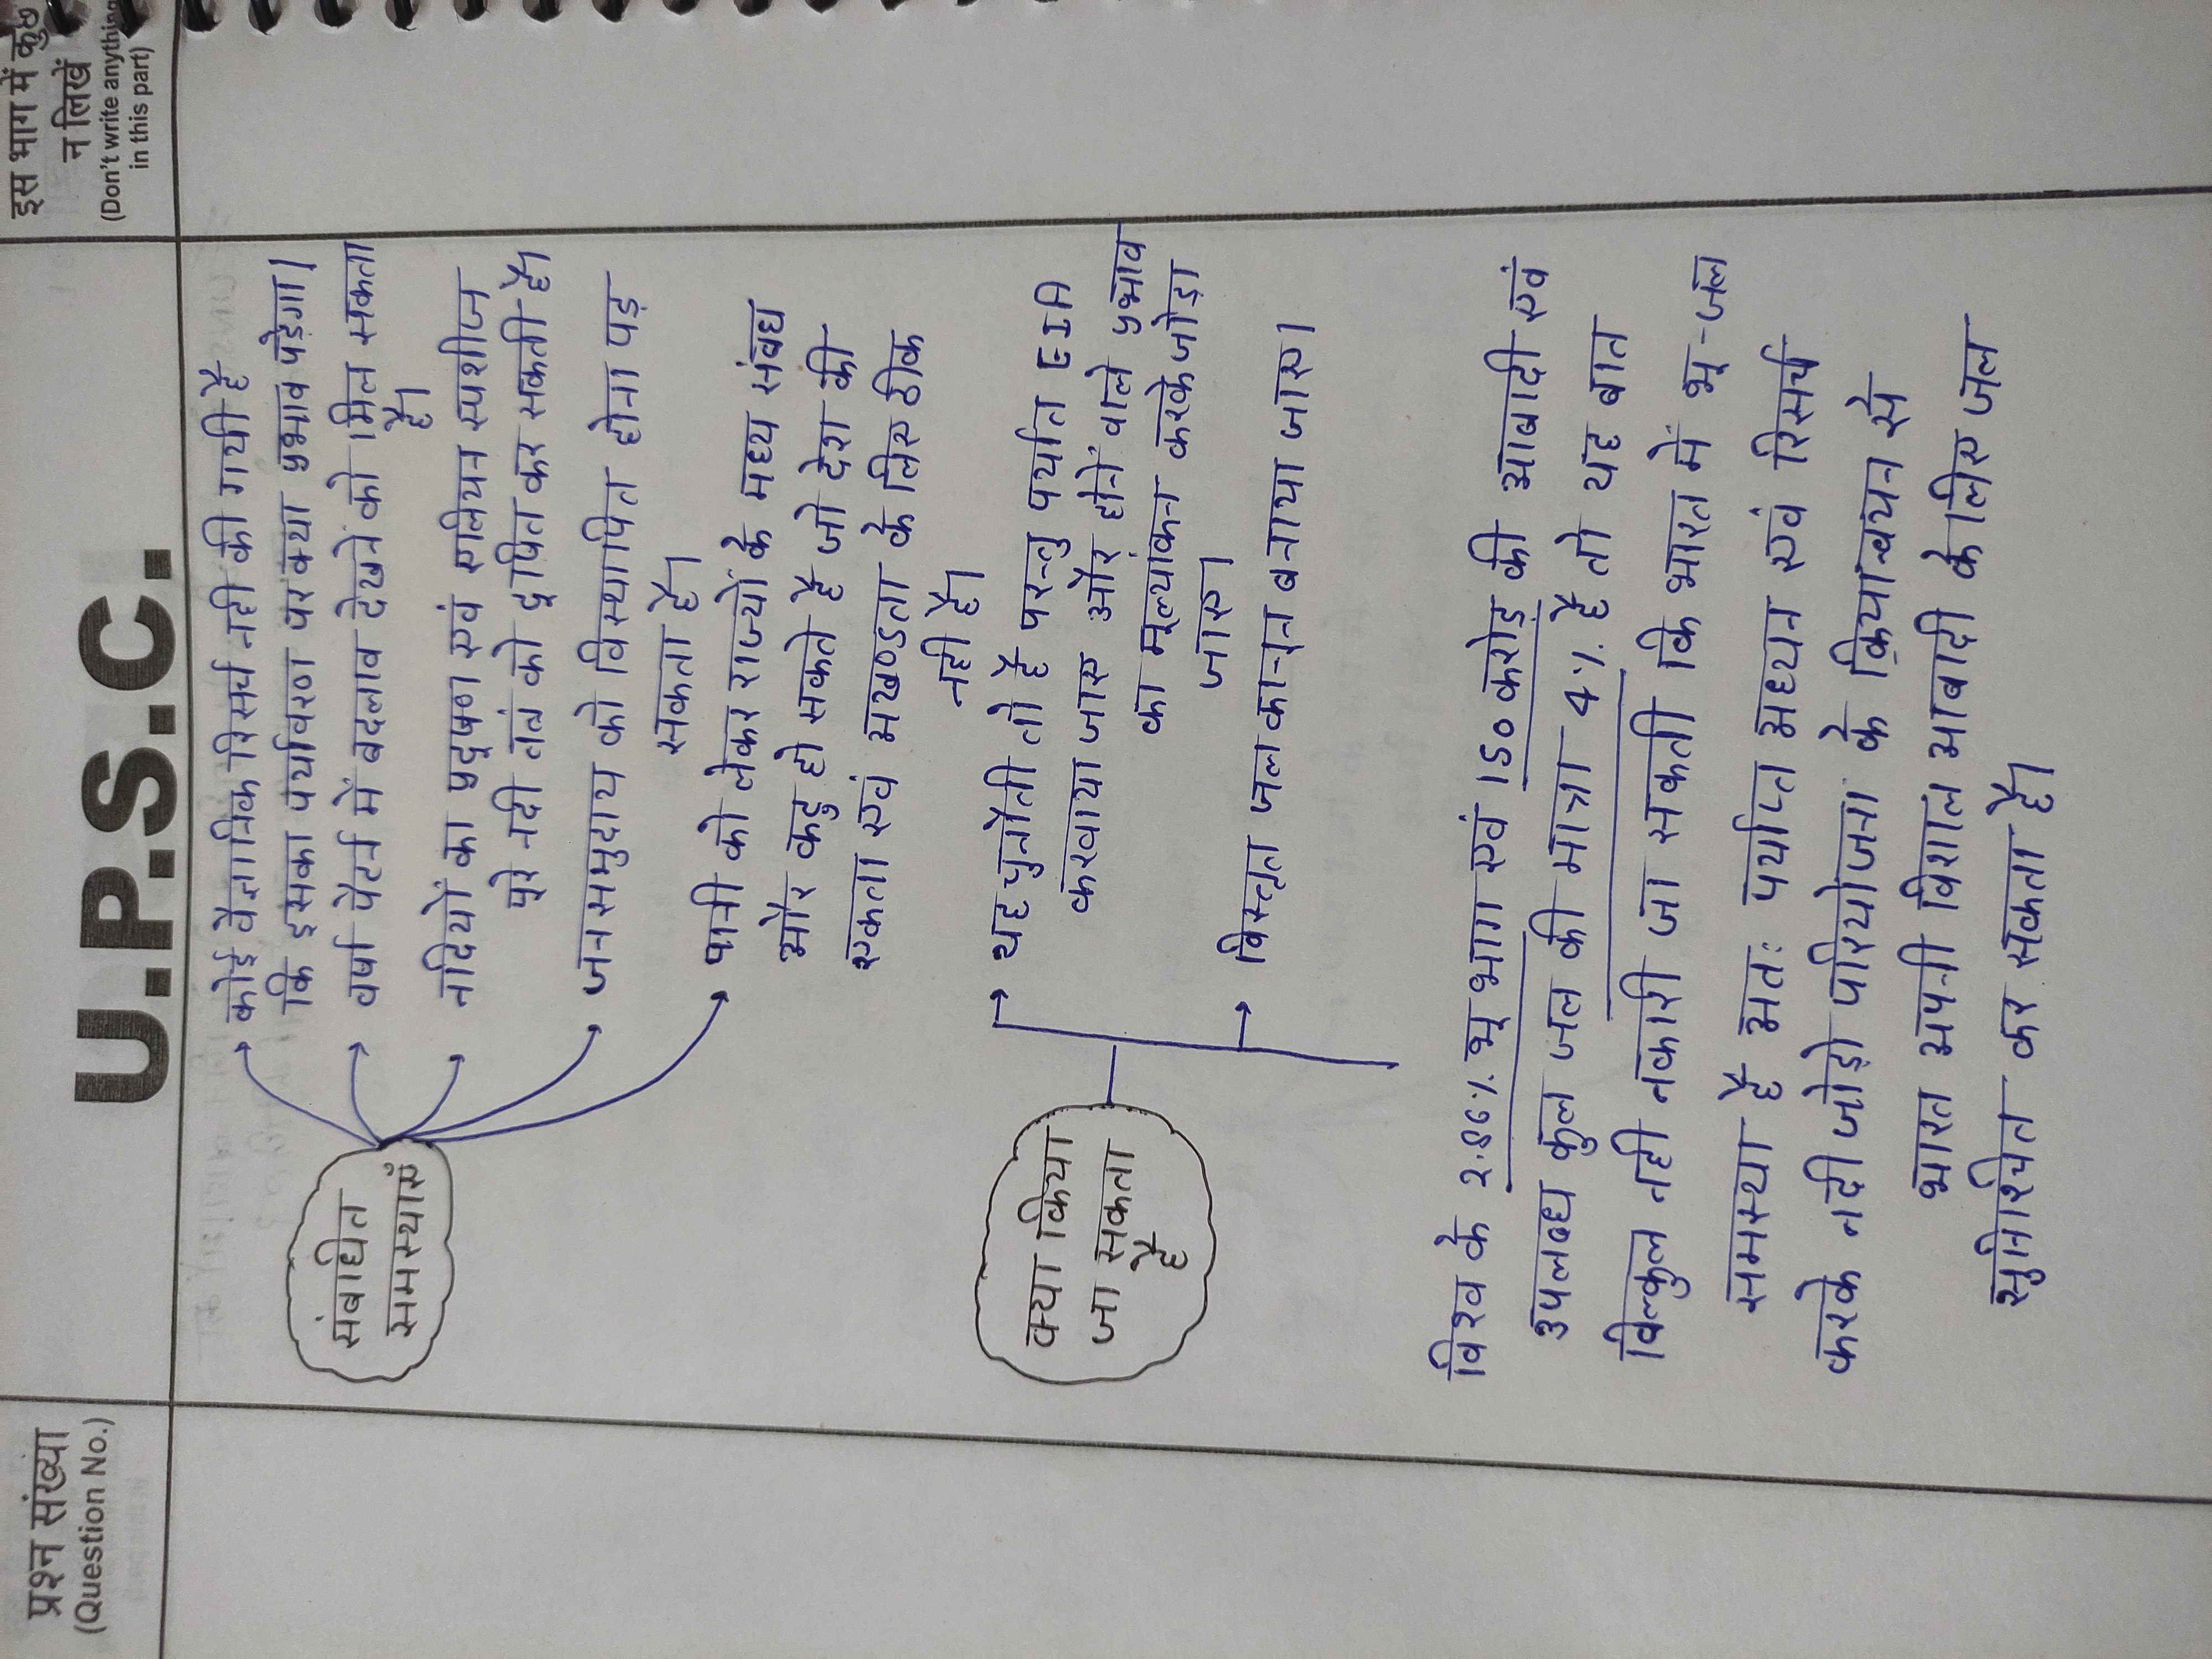 प्रश्न संख्या
(Question No.)
U.P.S.C.
इस भाग में कुछ
न लिखें
(Don't write anything
in this part)
संबंधित
समस्याएँ
कोई वैज्ञानिक रिसर्च नही की गयी है
कि इसका पर्यावरण पर क्या प्रभाव पड़ेगा।
वर्षा पैटर्न में बदलाव देखने को मिल सकता
है।
नदियों का प्रदूषण एवं एलियन स्पशीज
पूरे नदी तंत्र को दूषित कर सकती है।
जनसमुदाय को विस्थापित होना पड़
सकता है।
पानी को लेकर राज्यों के मध्य संबध
और कटु हो सकते है जो देश की
एकता एवं अखण्डता के लिए ठीक
नही है।
क्या किया
जा सकता
है
यह चुनौती तो है परन्तु पर्याप्त EIA
करवाया जाए और होने वाले प्रभाव
का मूल्यांकन करके जोड़ा
जाए।
विस्तृत जल कानून बनाया जाए।
विश्व के 2.4% भू भाग एवं 150 करोड़ की आबादी एवं
उपलब्ध कुल जल की मात्रा 4% है तो यह बात
बिल्कुल नही नकारी जा सकती कि भारत में भू-जल
समस्या है अतः पर्याप्त अध्यन एवं रिसर्च
करके नदी जोड़ो परियोजना के क्रियान्वयन से
भारत अपनी विशाल आबादी के लिए जल
सुनिश्चित कर सकता है।